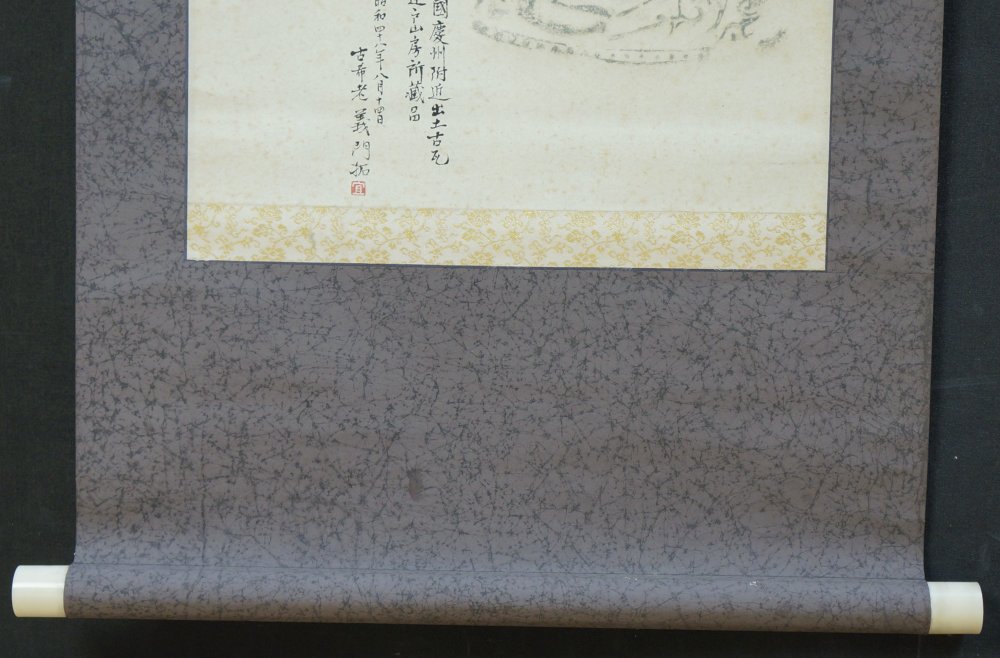 國慶州附近出土古瓦
江山房所藏品
昭和四十八年八月十四日
古希老 義門拓